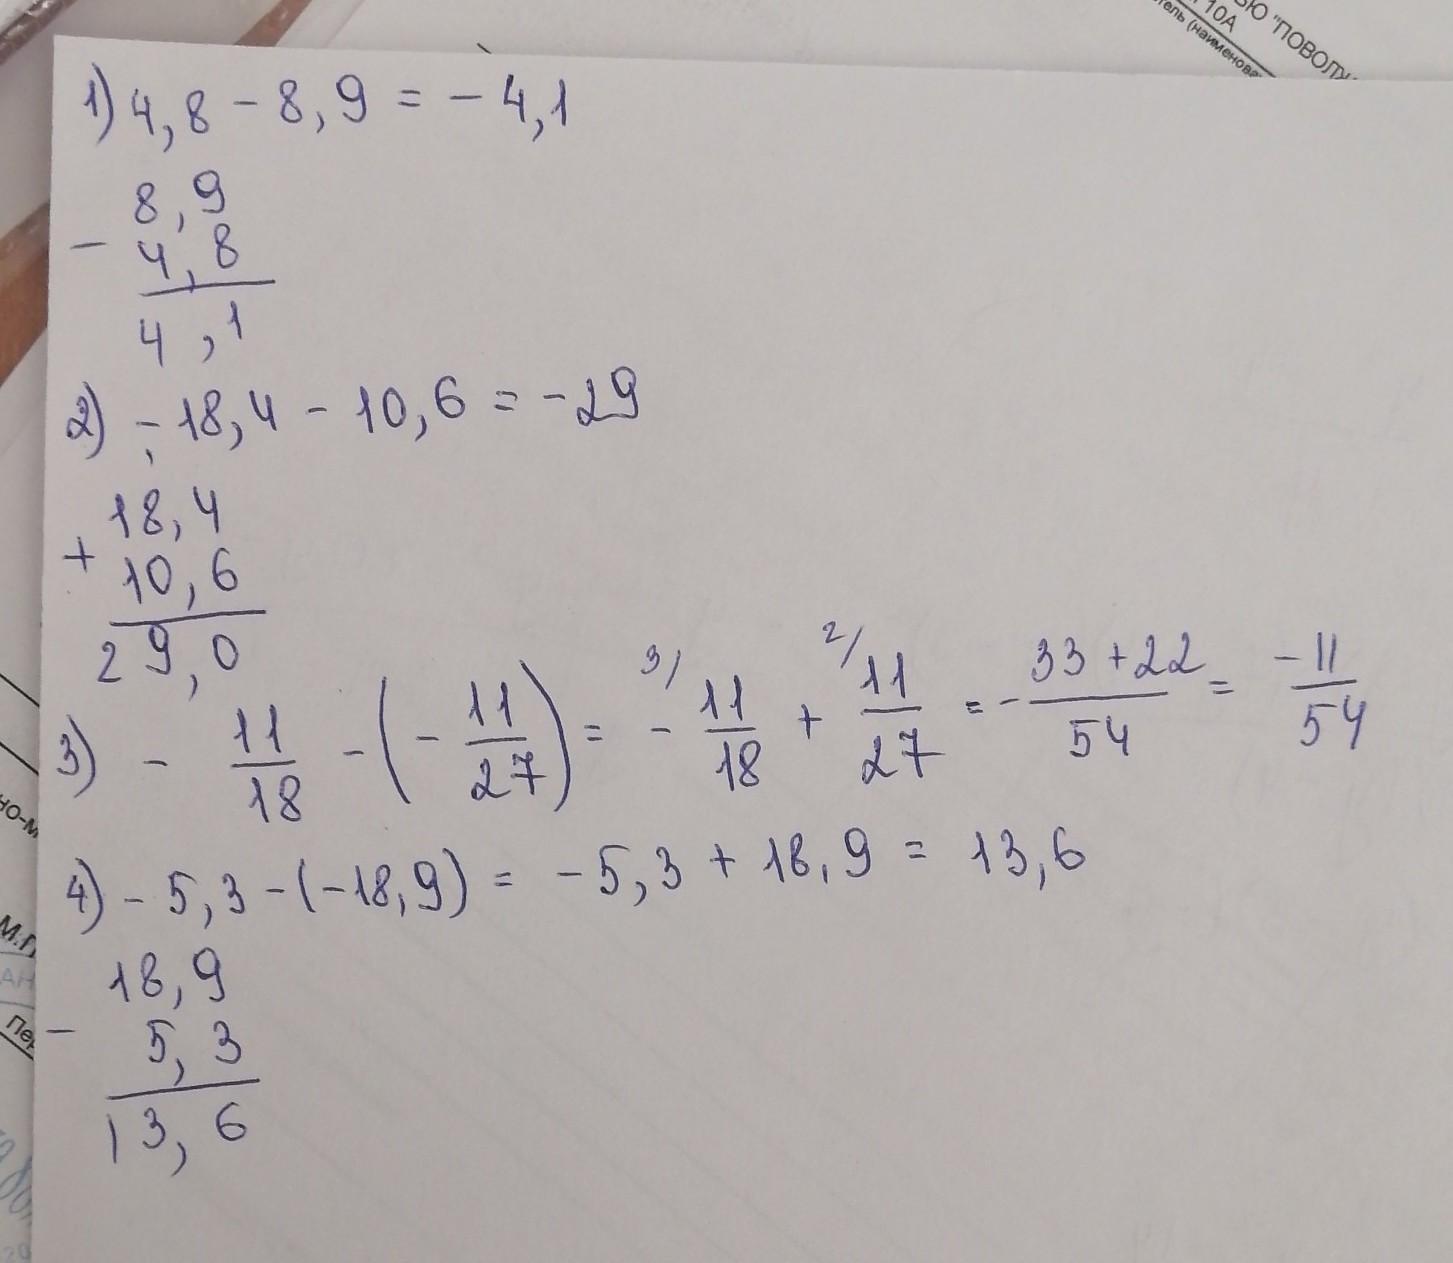 ЬЮ "ПОВОЛ
10А
тель (наименова
1) 4,8 - 8,9 = - 4,1
8,9
- 4,8
4,1
2) - 18,4 - 10,6 = -29
18,4
+ 10,6
29,0
3) - 11/18 - (- 11/27) = 3/ - 11/18 + 2/ 11/27 = - 33 + 22/54 = -11/54
4) - 5,3 - (-18,9) = -5,3 + 18,9 = 13,6
18,9
- 5,3
13,6
но-м
М.П
АН
Пер